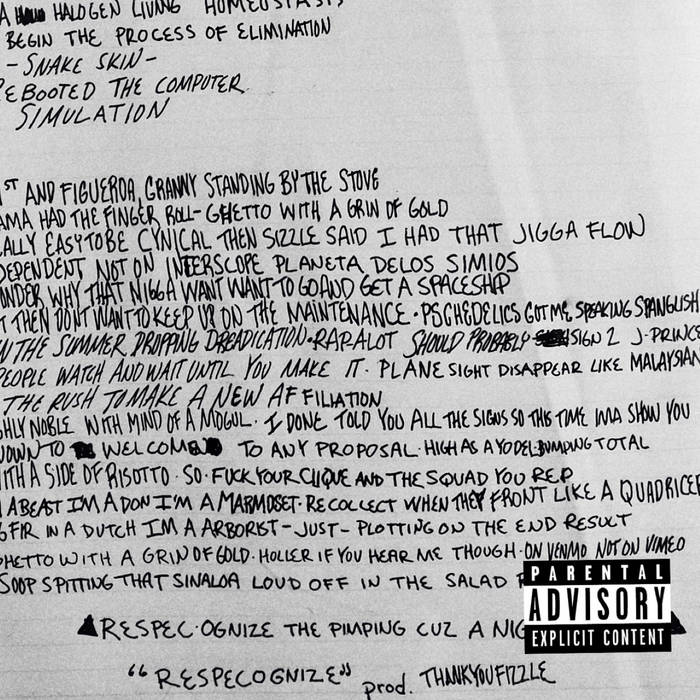 A HALOGEN LIVING HOMEOSTASIS
BEGIN THE PROCESS OF ELIMINATION
- SNAKE SKIN -
REBOOTED THE COMPUTER
SIMULATION
1ST AND FIGUEROA, GRANNY STANDING BY THE STOVE
AMA HAD THE FINGER ROLL - GHETTO WITH A GRIN OF GOLD
EALLY EASY TO BE CYNICAL THEN SIZZLE SAID I HAD THAT JIGGA FLOW
DEPENDENT NOT ON INTERSCOPE PLANETA DELOS SIMIOS
ONDER WHY THAT NIGGA WANT WANT TO GO AND GET A SPACESHIP
T THEN DONT WANT TO KEEP UP ON THE MAINTENANCE · PSCHEDELICS GOT ME SPEAKING SPANGLISH
N THE SUMMER DROPPING DREADICATION · RAP-A LOT SHOULD PROBABLY SIGN 2 J-PRINCE
PEOPLE WATCH AND WAIT UNTIL YOU MAKE IT · PLANE SIGHT DISAPPEAR LIKE MALAYSIAN
THE RUSH TO MAKE A NEW AFFILIATION
GHLY NOBLE WITH MIND OF A MOGUL · I DONE TOLD YOU ALL THE SIGNS SO THIS TIME IMA SHOW YOU
DOWN TO WELCOME TO ANY PROPOSAL · HIGH AS A YODEL BUMPING TOTAL
WITH A SIDE OF RISOTTO · SO · FUCK YOUR CLIQUE AND THE SQUAD YOU REP
A BEAST IM A DON I'M A MARMOSET · RECOLLECT WHEN THEY FRONT LIKE A QUADRICEP
FIR IN A DUTCH IM A ARBORIST - JUST - PLOTTING ON THE END RESULT
GHETTO WITH A GRIN OF GOLD · HOLLER IF YOU HEAR ME THOUGH · ON VENMO NOT ON VIMEO
SOOP SPITTING THAT SINALOA LOUD OFF IN THE SALAD
RESPEC·OGNIZE THE PIMPING CUZ A NIG
"RESPECOGNIZE" prod. THANKYOUFIZZLE
PARENTAL
ADVISORY
EXPLICIT CONTENT